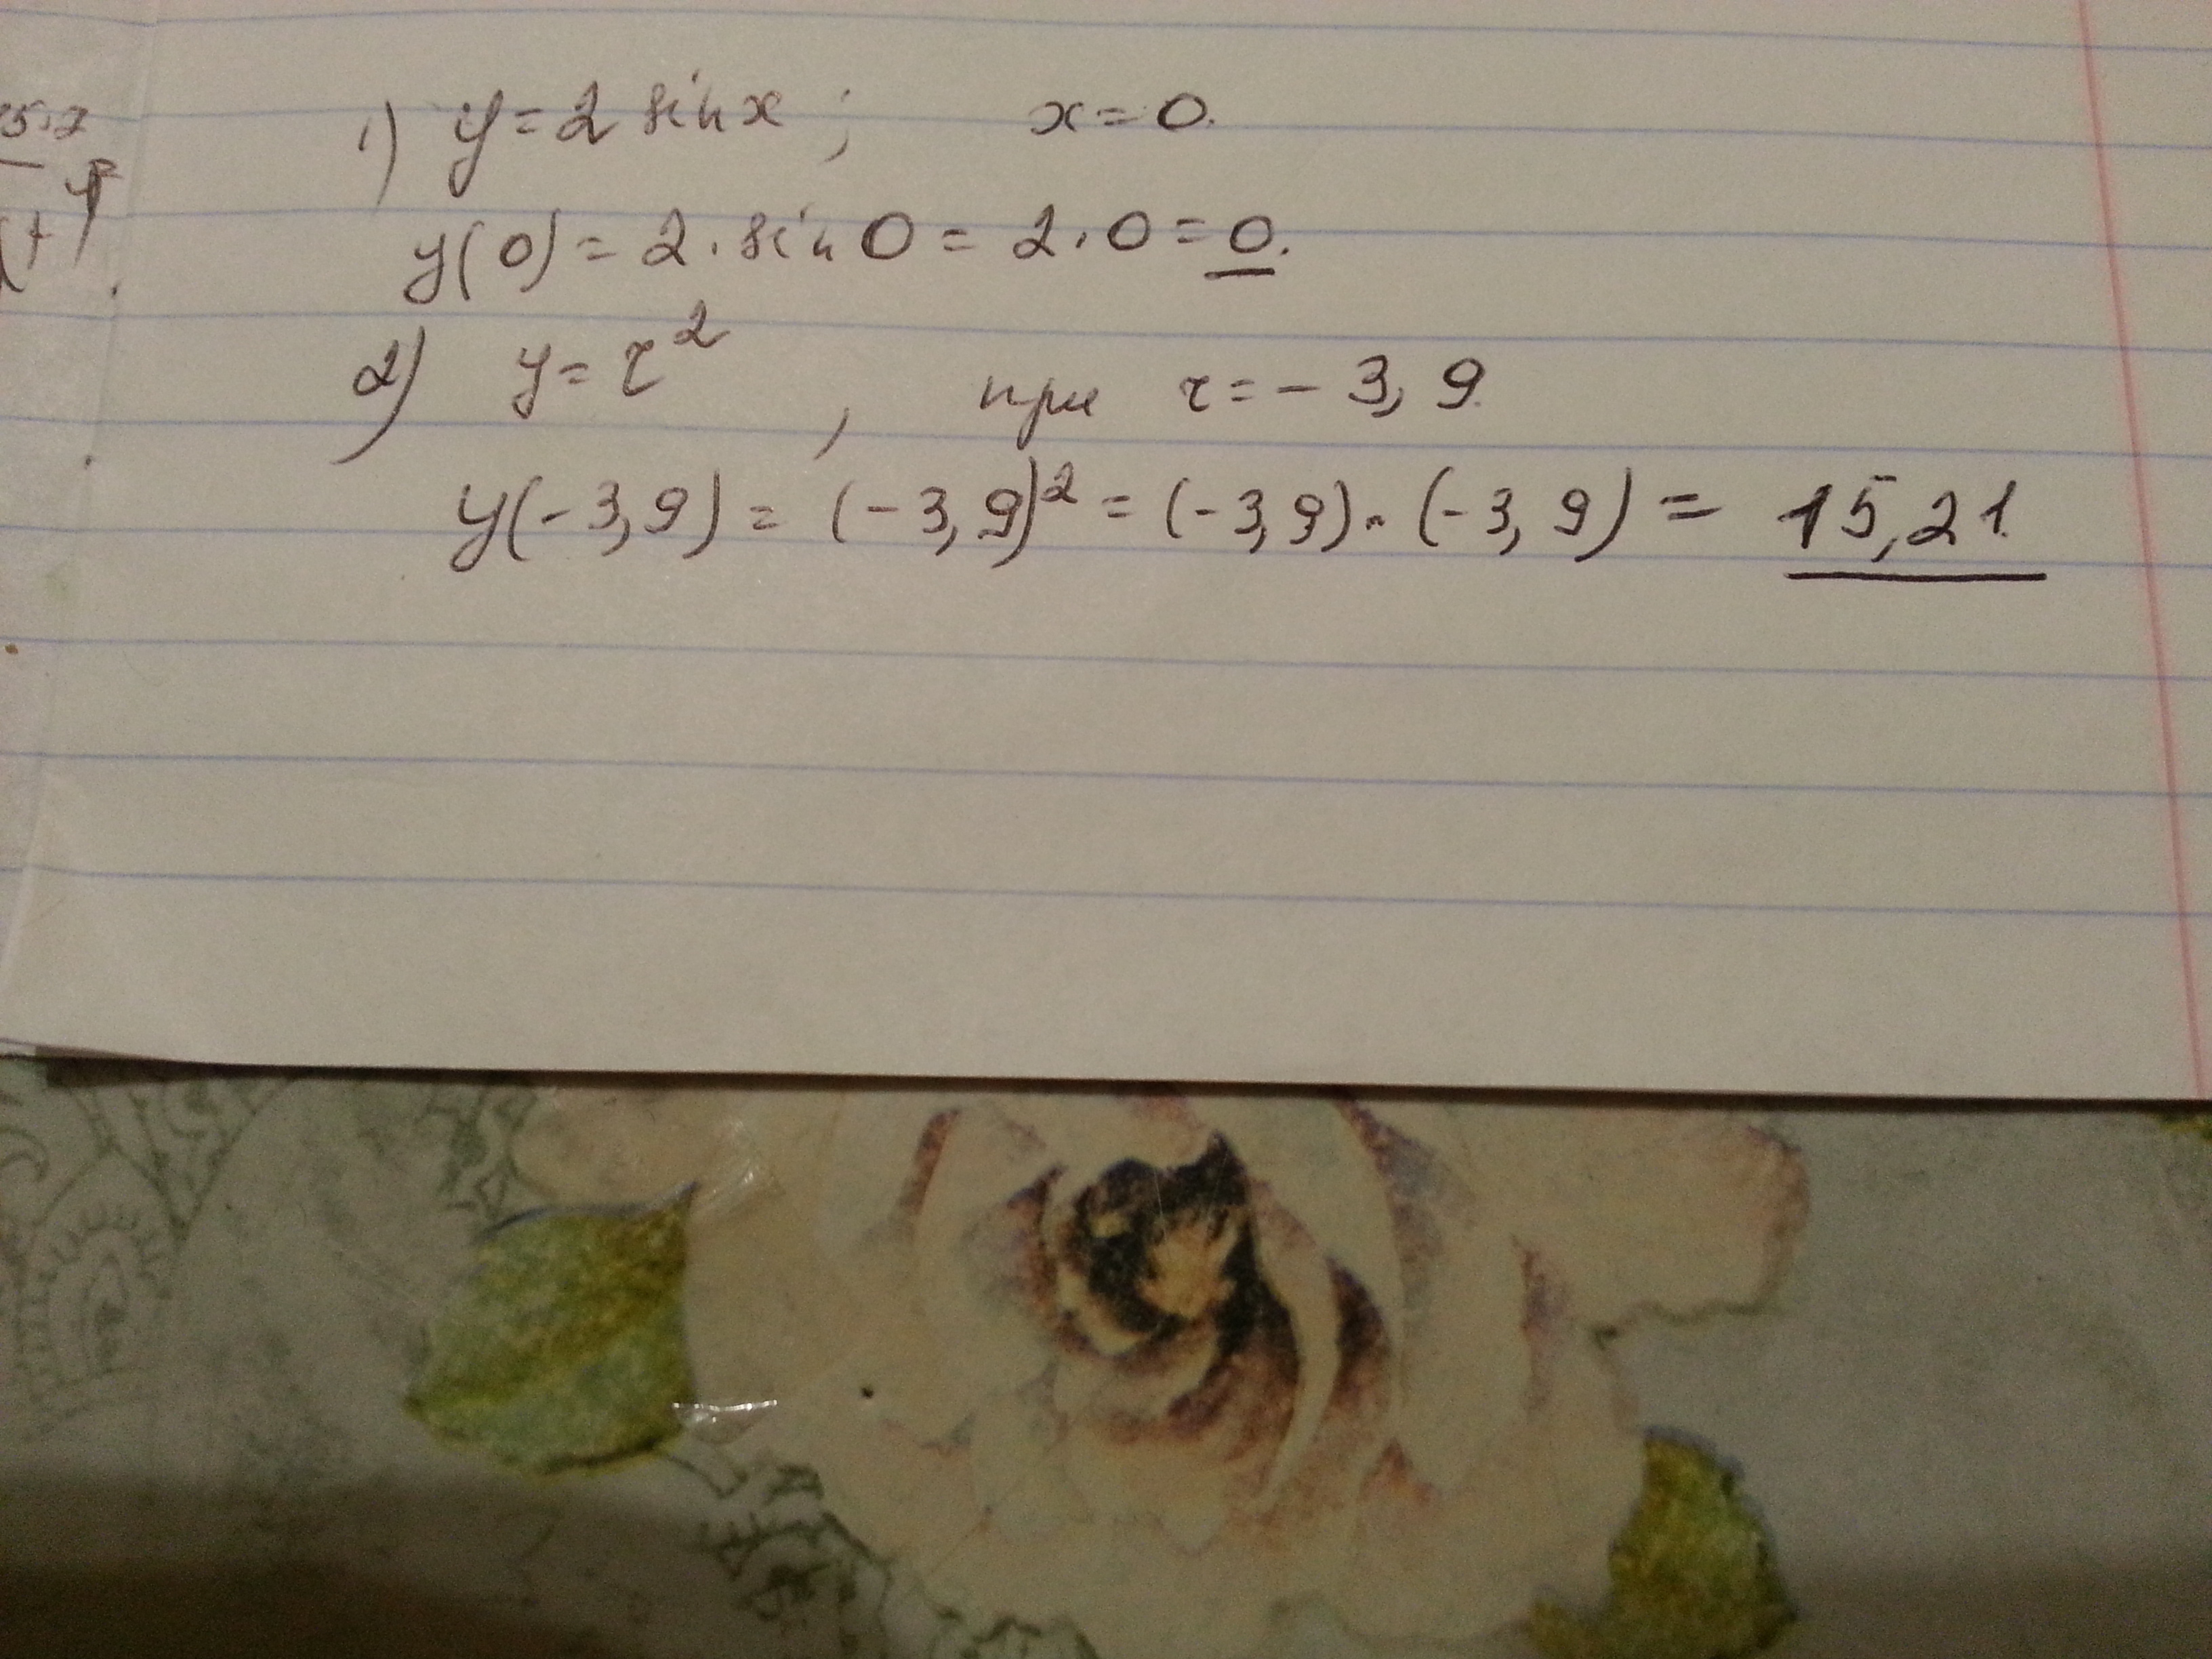 1) y = 2 sin x ; x = 0.
y(0) = 2 · sin 0 = 2 · 0 = 0.
2) y = τ² , при τ = - 3,9.
y(-3,9) = (-3,9)² = (-3,9) · (-3,9) = 15,21.